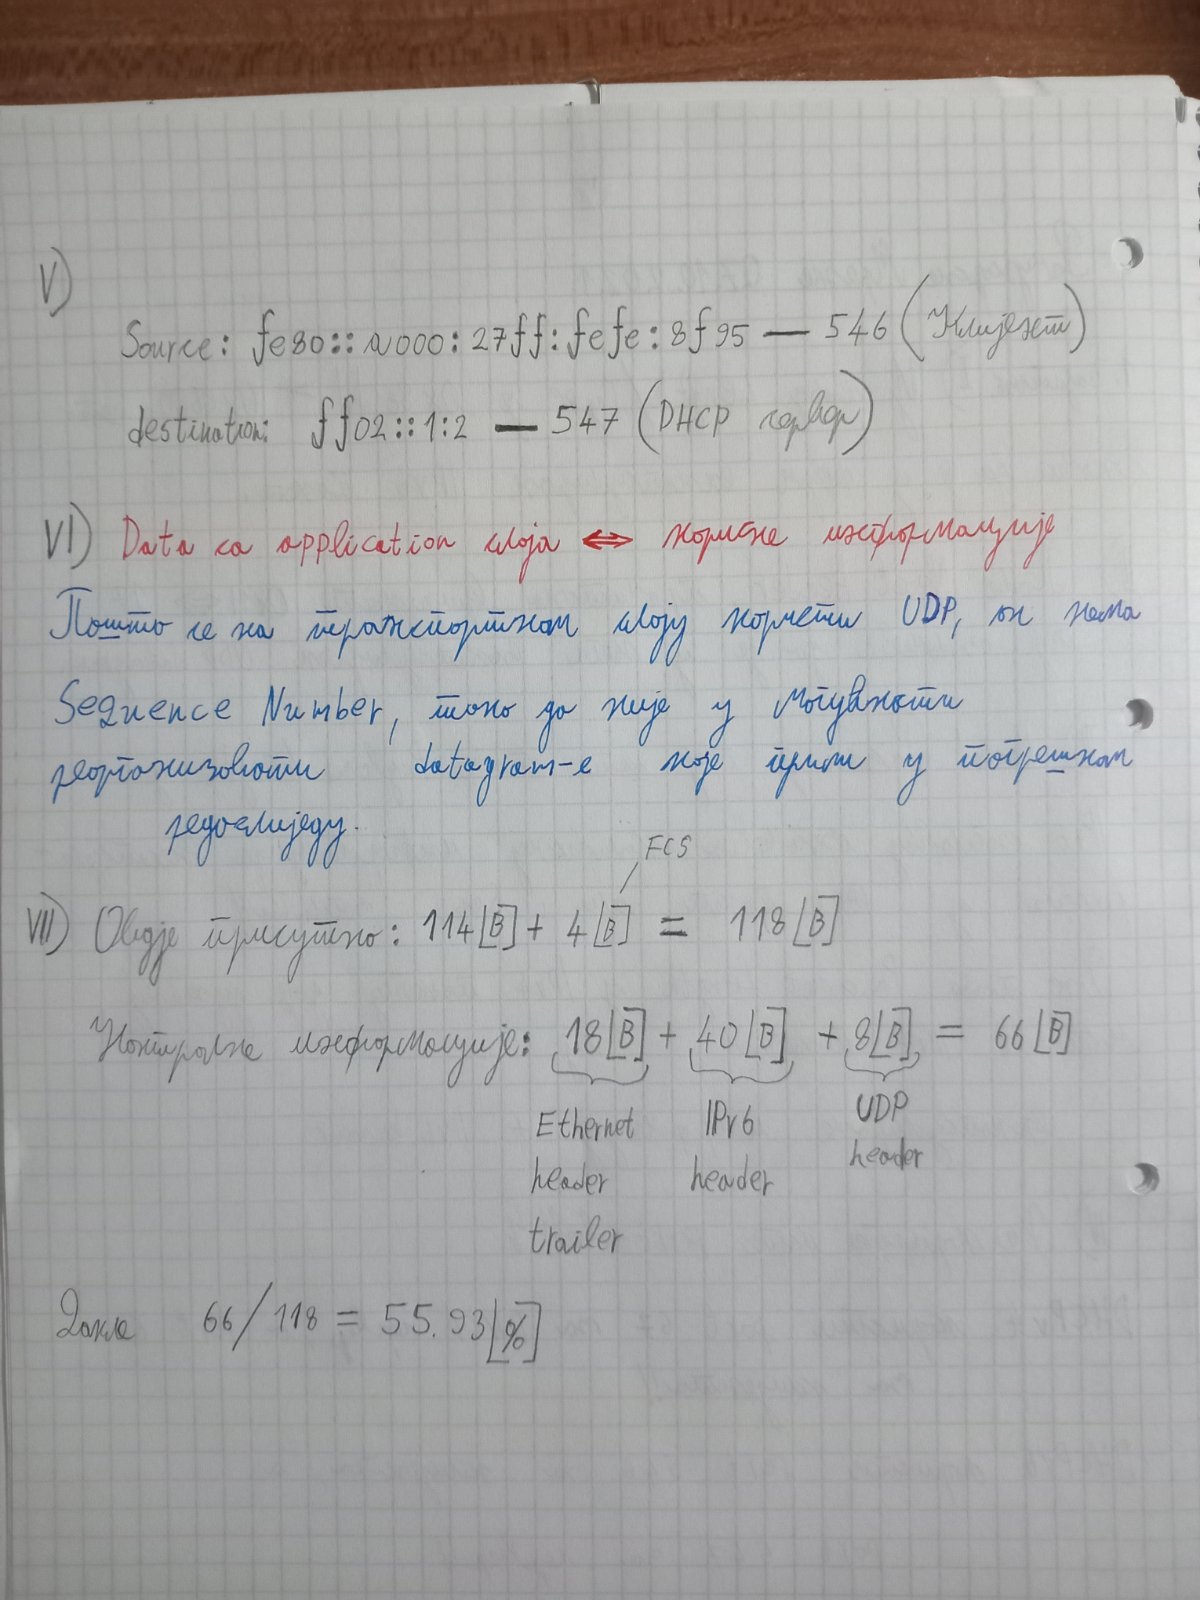 V)
Source: fe80::a000:27ff:fefe:8f95 — 546 (Клијент)
destination: ff02::1:2 — 547 (DHCP сервер)
VI) Data са application слоја ⇔ корисне информације
Пошто се на транспортном слоју користи UDP, он нема
Sequence Number, тако да није у могућности
реорганизовати datagram-е које прими у погрешном
редослиједу.
FCS
VII) Овдје присутно: 114[B] + 4[B] = 118[B]
Контролне информације: 18[B] + 40[B] + 8[B] = 66[B]
Ethernet IPv6 UDP
header header header
trailer
Дакле 66/118 = 55.93[%]